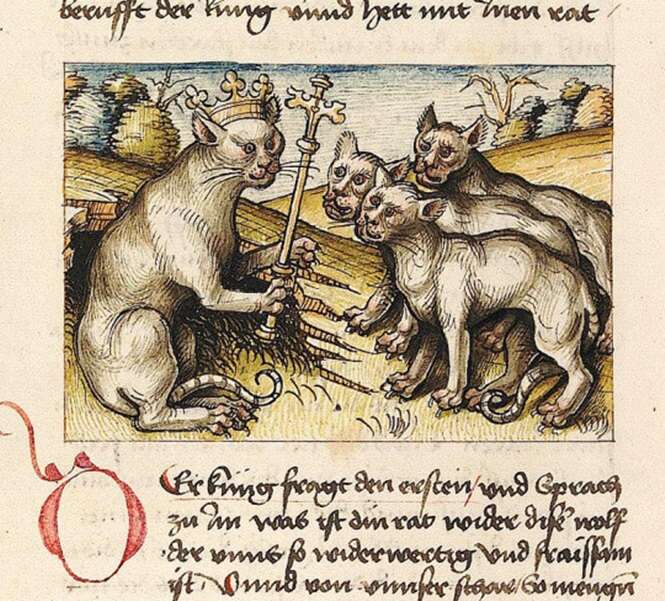 berufft der kung vnnd hett mit Inen rat /
Der kung fragt den ersten / vnd sprach
zu Im was ist din rat wider dise wolf
der vnns so widerwertig vnd fraissam
ist / Vnnd von vnnser schar / so mengen